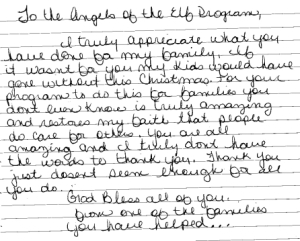 To the Angels of the Elf Program,
I truly appreciate what you
have done for my family. If
it wasnt for you my kids would have
gone without this Christmas. For your
program to do this for families you
dont even know is truly amazing
and restores my faith that people
do care for others. You are all
amazing and I truly dont have
the words to thank you. Thank you
just dosent seem enough for all
you do.
God Bless all of you.
from one of the families
you have helped...